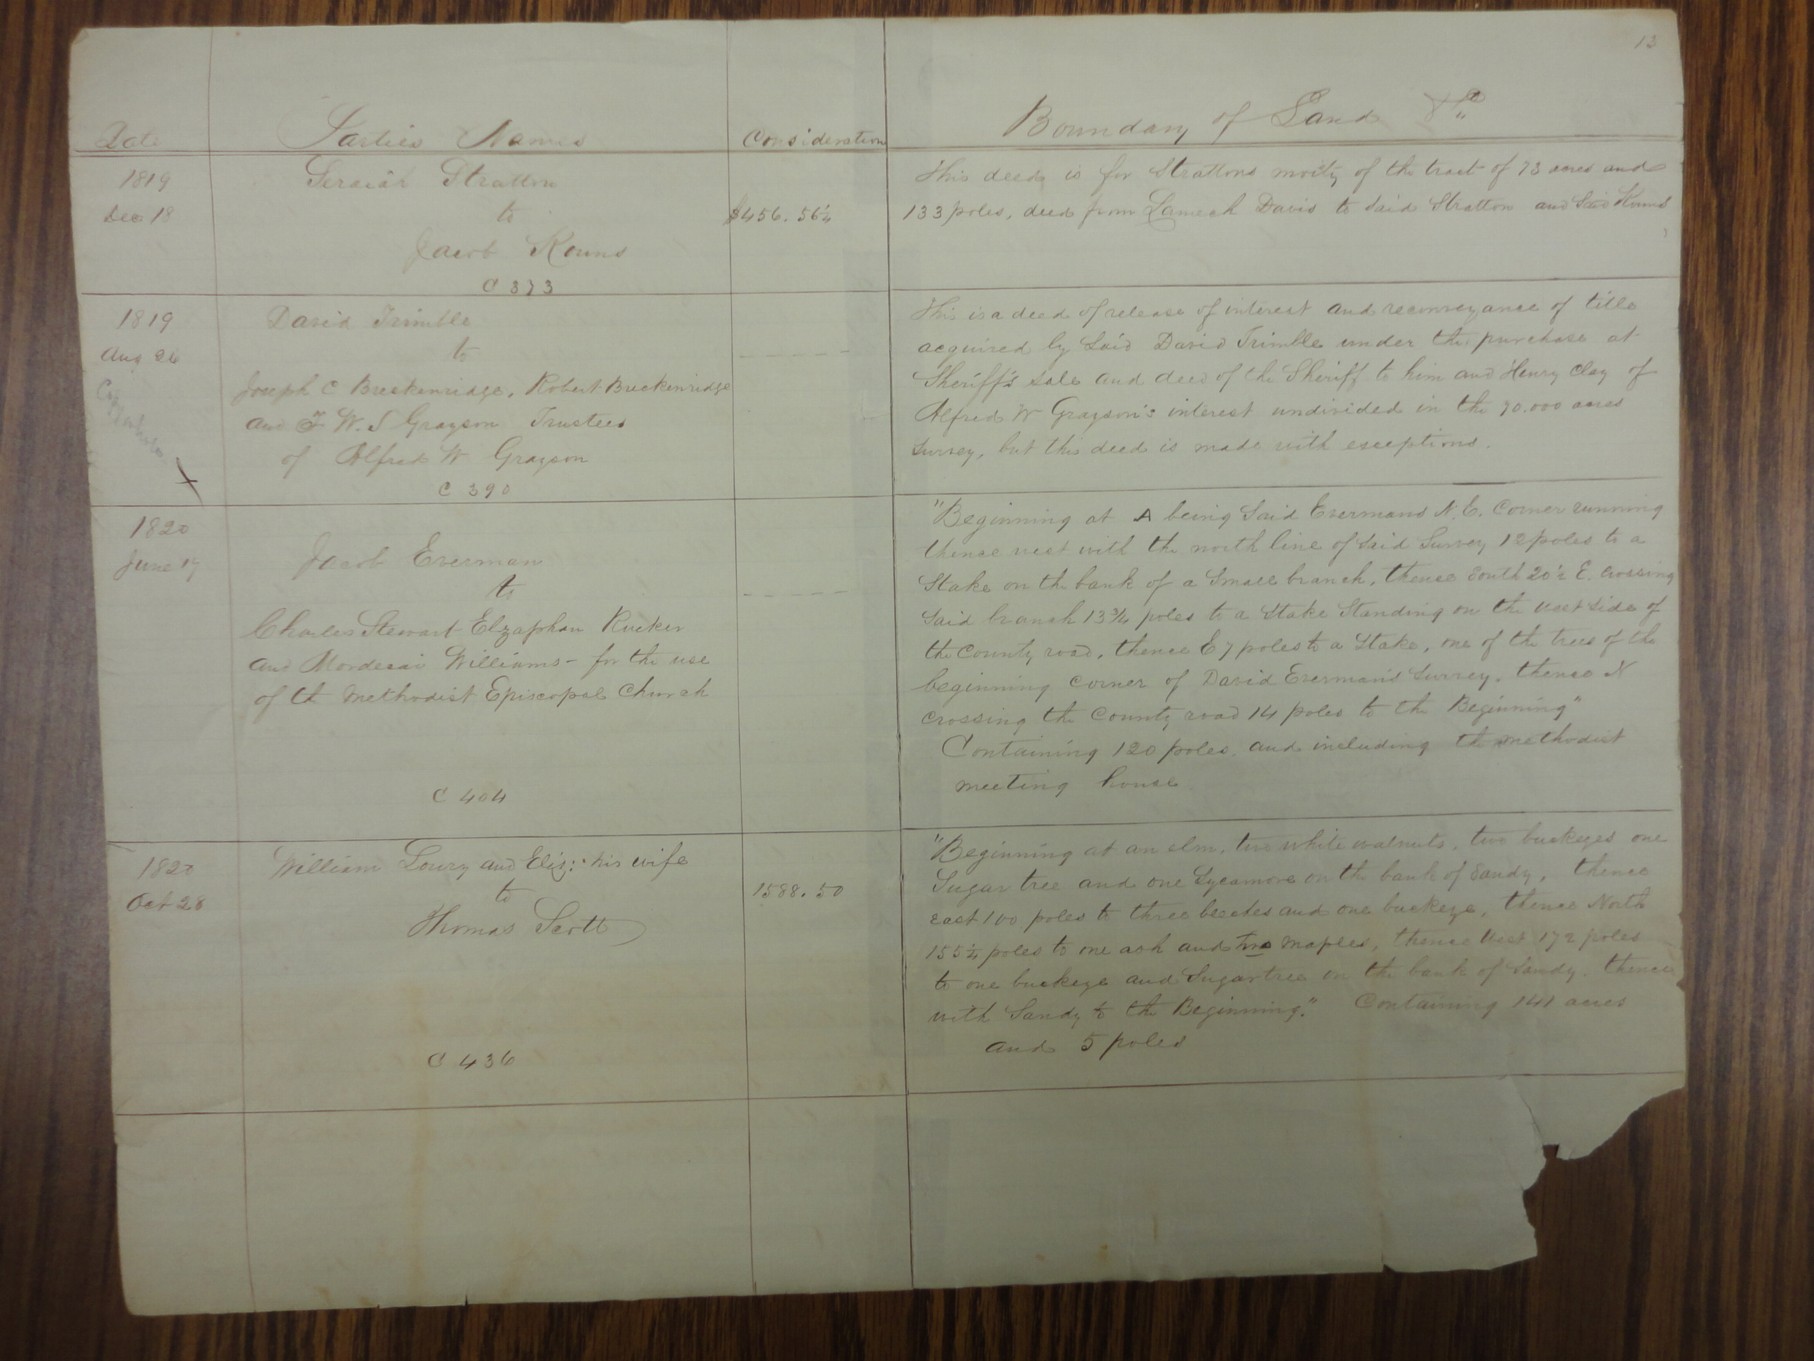 13
Date Parties Names Consideration Boundary of Land &c
1819 Seraiah Stratton This deed is for Strattons moity of the tract of 73 acres and
Dec 18 to $456.56¼ 133 poles, deed from Lamech Davis to said Stratton and said Kouns
Jacob Kouns
C 373
1819 David Trimble This is a deed of release of interest and reconveyance of title
Aug 26 to acquired by said David Trimble under the purchase at
Joseph C Breckenridge, Robert Breckenridge Sheriff's sale and deed of the Sheriff to him and Henry Clay of
and F W. S Grayson Trustees Alfred W Grayson's interest undivided in the 70.000 acres
of Alfred W Grayson survey, but this deed is made with exceptions.
C 390
1820 "Beginning at A being said Evermans N. E. Corner running
June 17 Jacob Everman thence west with the north line of said survey 12 poles to a
to Stake on the bank of a small branch, thence South 20½ E. crossing
Charles Stewart Elzaphan Rucker said branch 13¾ poles to a Stake Standing on the west side of
and Mordecai Williams - for the use the County road, thence E 7 poles to a Stake, one of the trees of the
of th Methodist Episcopal Church beginning corner of David Everman's Survey. thence N
crossing the County road 14 poles to the Beginning"
Containing 120 poles. and including the methodist
meeting house
C 404
1820 William Lowry and Eliz: his wife "Beginning at an elm, two white walnuts, two buckeyes one
Oct 28 to 1588.50 Sugar tree and one Sycamore on the bank of Sandy, thence
Thomas Scott east 100 poles to three beeches and one buckeye, thence North
155¼ poles to one ash and two maples, thence West 172 poles
to one buckeye and Sugartree on the bank of Sandy. thence
with Sandy to the Beginning." Containing 141 acres
and 5 poles
C 436